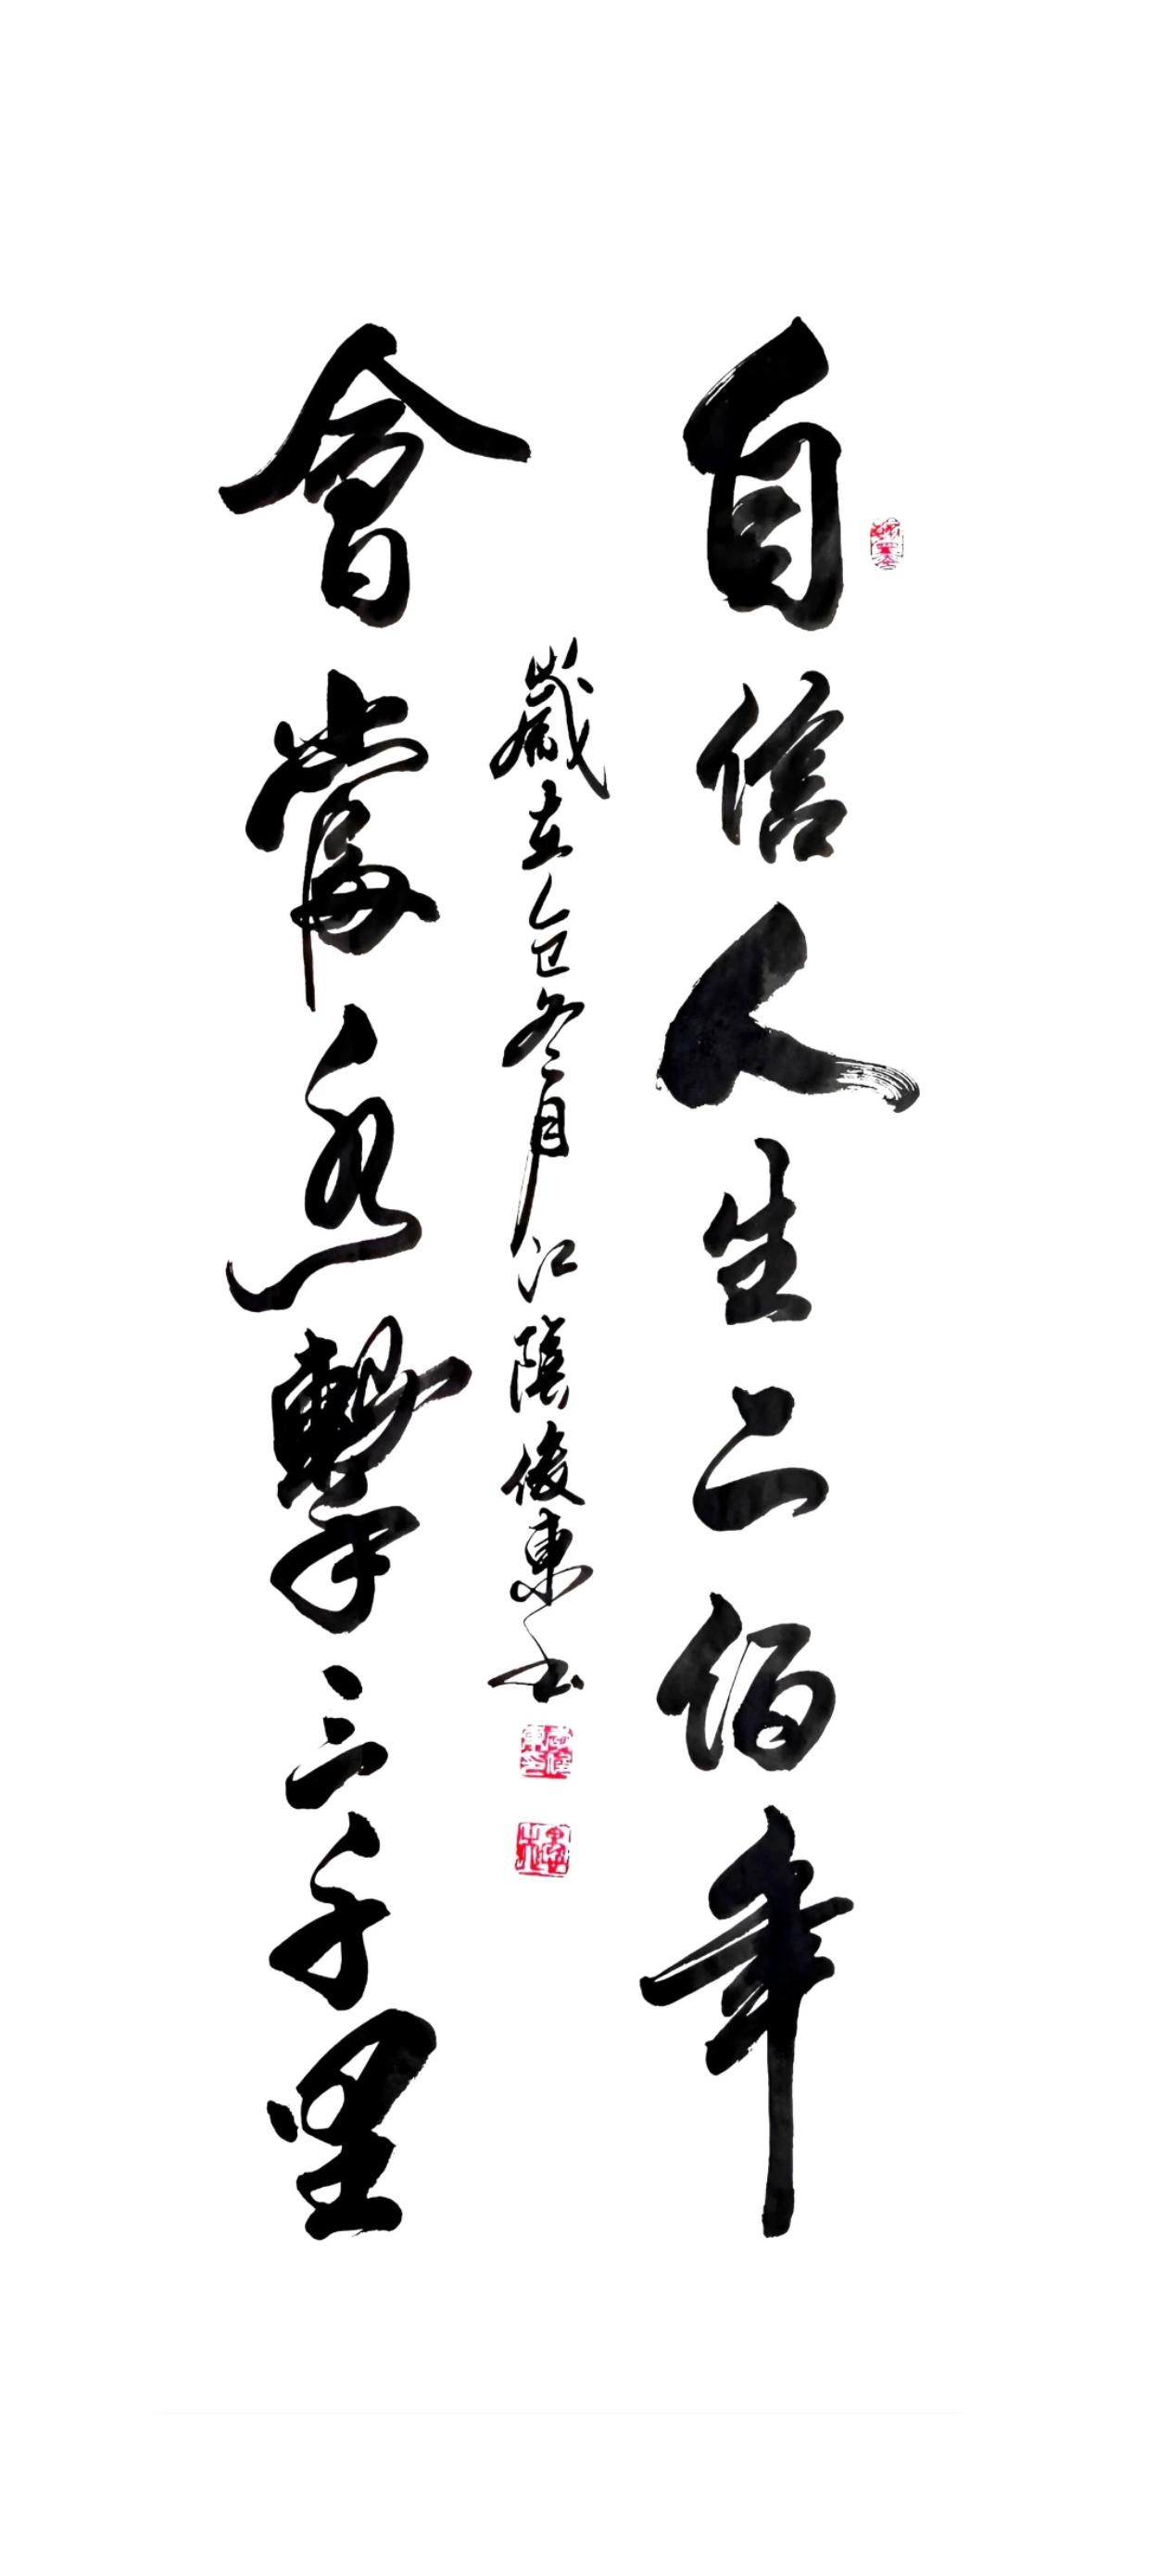 自信人生二佰年
會當水擊三千里
歲在乙巳冬月江陰俊東书